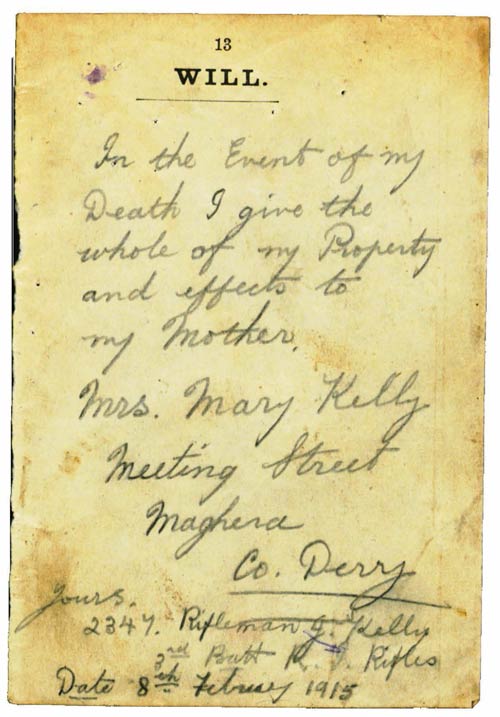 13
WILL.
In the Event of my
Death I give the
whole of my Property
and effects to
my Mother.
Mrs. Mary Kelly
Meeting Street
Maghera
Co. Derry
Yours.
2347. Rifleman J. Kelly
3rd Batt R. I. Rifles
Date 8th Februey 1915